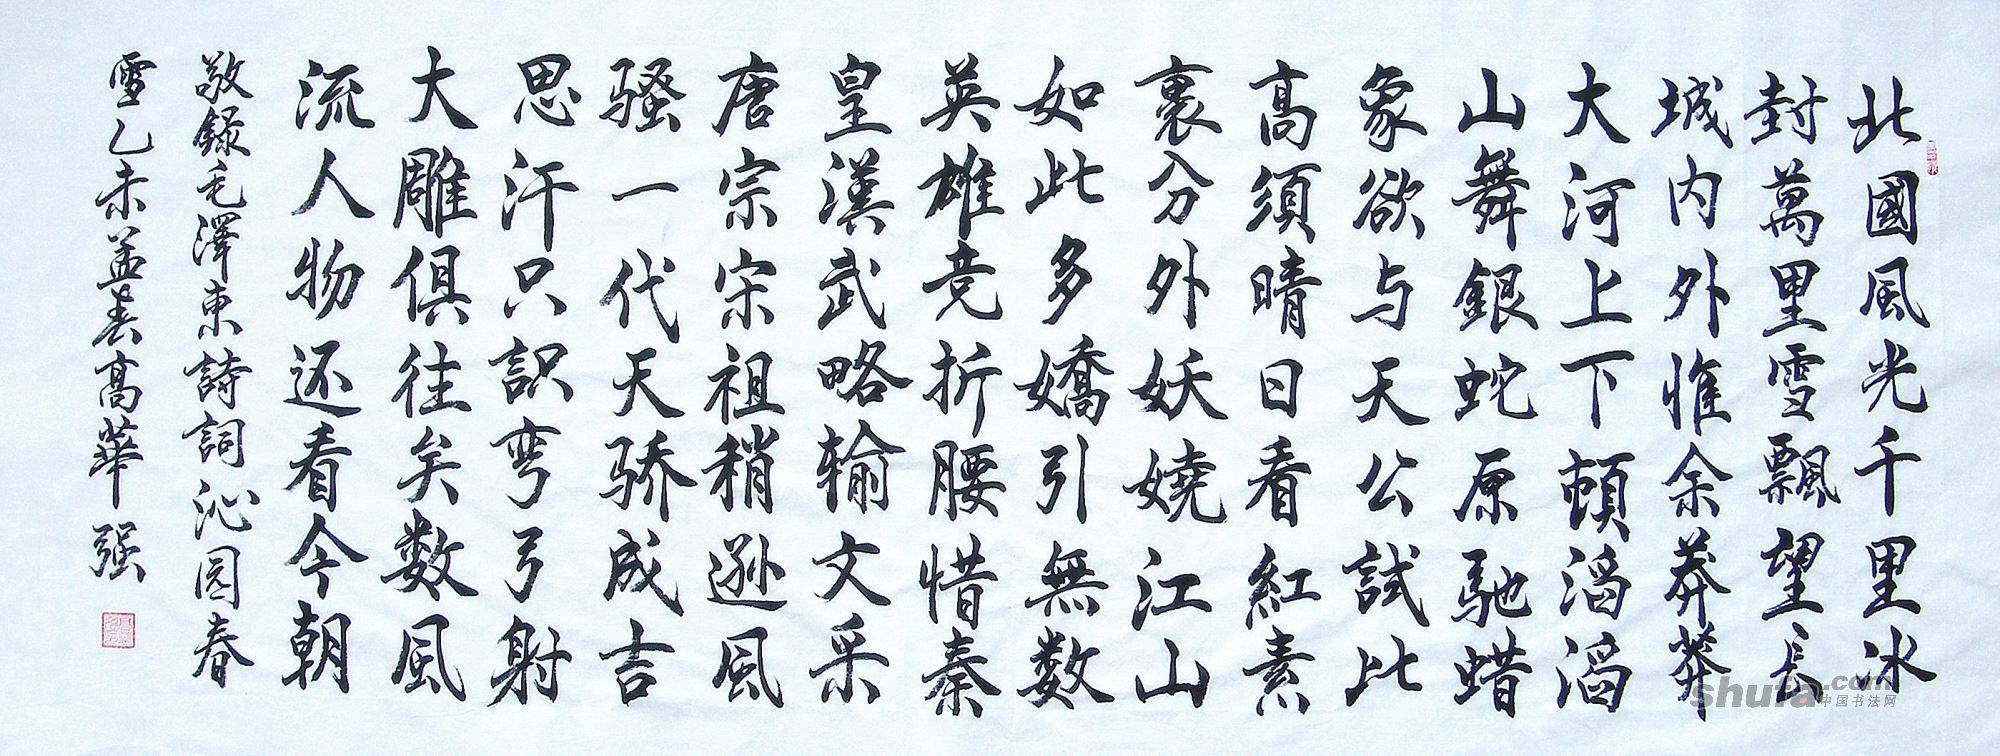 北國風光千里冰
封萬里雪飄望長
城内外惟余莽莽
大河上下頓滔滔
山舞銀蛇原驰蜡
象欲与天公試比
高須晴日看紅素
裹分外妖嬈江山
如此多嬌引無数
英雄竞折腰惜秦
皇漢武略输文采
唐宗宋祖稍逊風
骚一代天骄成吉
思汗只識弯弓射
大雕俱往矣数風
流人物还看今朝
敬録毛澤東詩詞沁园春
雪乙未孟春高華强
shufa.com
中国书法网